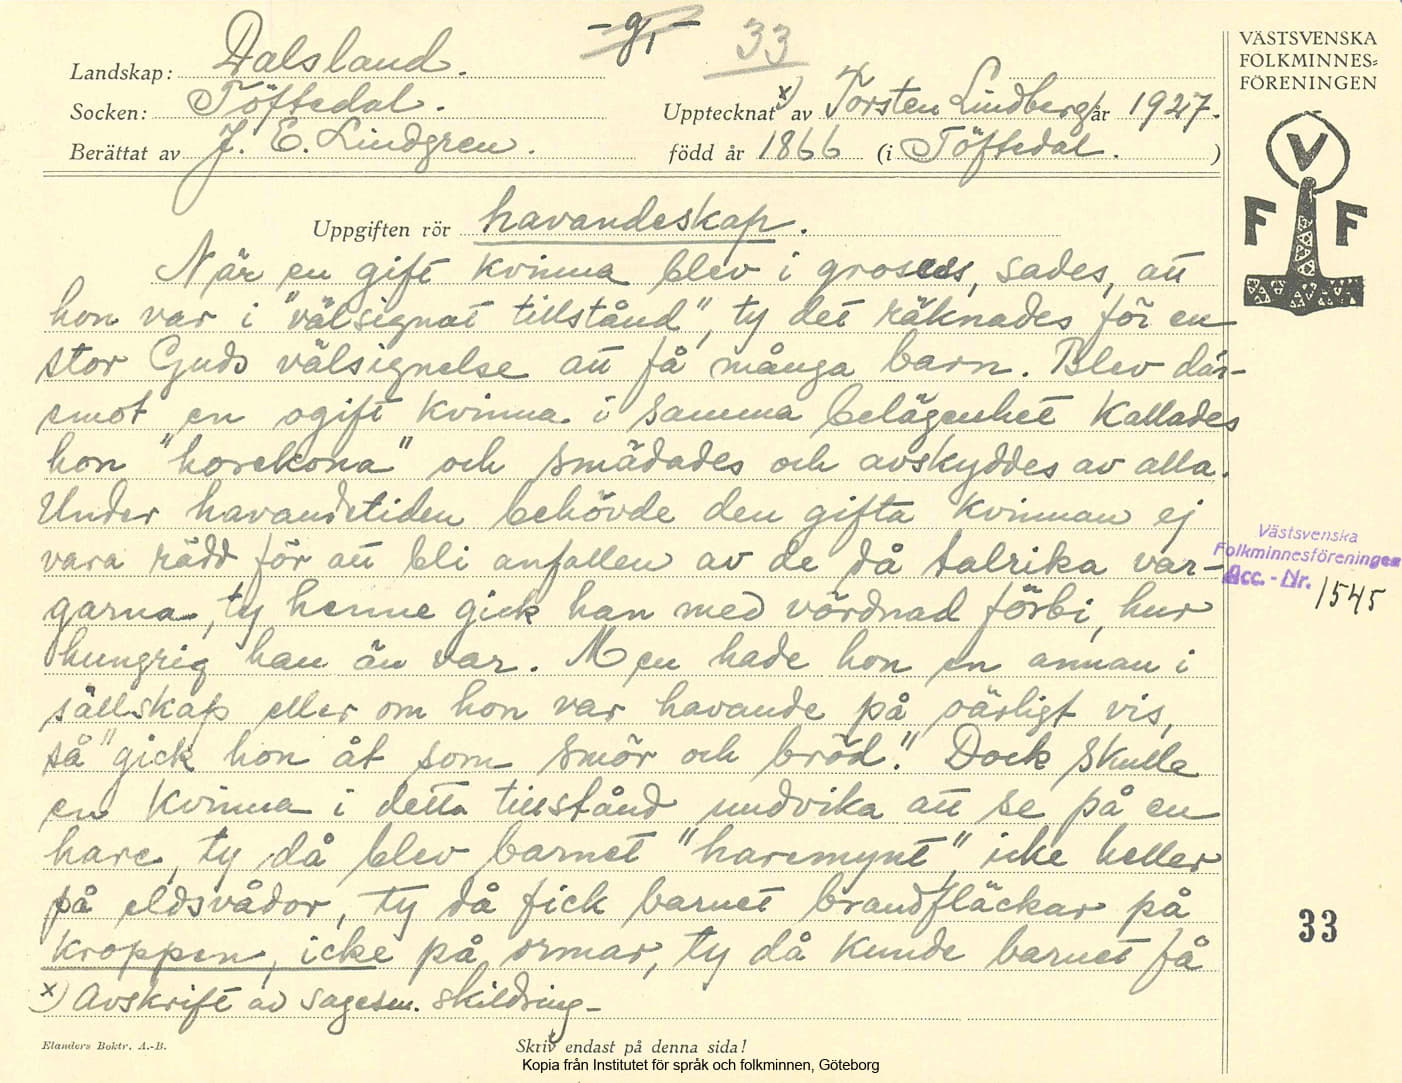 -g,- 33
Landskap: Dalsland.
Socken: Töftedal.
Upptecknat x) av Torsten Lindberg år 1927.
Berättat av J. E. Lindgren.
född år 1866 (i Töftedal.)
Uppgiften rör havandeskap.
När en gift kvinna blev i grossess, sades, att
hon var i "välsignat tillstånd", ty det räknades för en
stor Guds välsignelse att få många barn. Blev där-
emot en ogift kvinna i samma belägenhet kallades
hon "horekona" och smädades och avskyddes av alla.
Under havandetiden behövde den gifta kvinnan ej
vara rädd för att bli anfallen av de då talrika var-
garna, ty henne gick han med vördnad förbi, hur
hungrig han än var. Men hade hon en annan i
sällskap eller om hon var havande på oärligt vis,
så "gick hon åt som smör och bröd". Dock skulle
en kvinna i detta tillstånd undvika att se på en
hare, ty då blev barnet "haremynt", icke heller
på eldsvådor, ty då fick barnet brandfläckar på
kroppen, icke på ormar, ty då kunde barnet få
x) Avskrift av sagesm. skildring-
Elanders Boktr. A.-B.
Skriv endast på denna sida!
Kopia från Institutet för språk och folkminnen, Göteborg
VÄSTSVENSKA
FOLKMINNES=
FÖRENINGEN
V
F F
Västsvenska
Folkminnesföreningen
Acc. - Nr. 1545
33